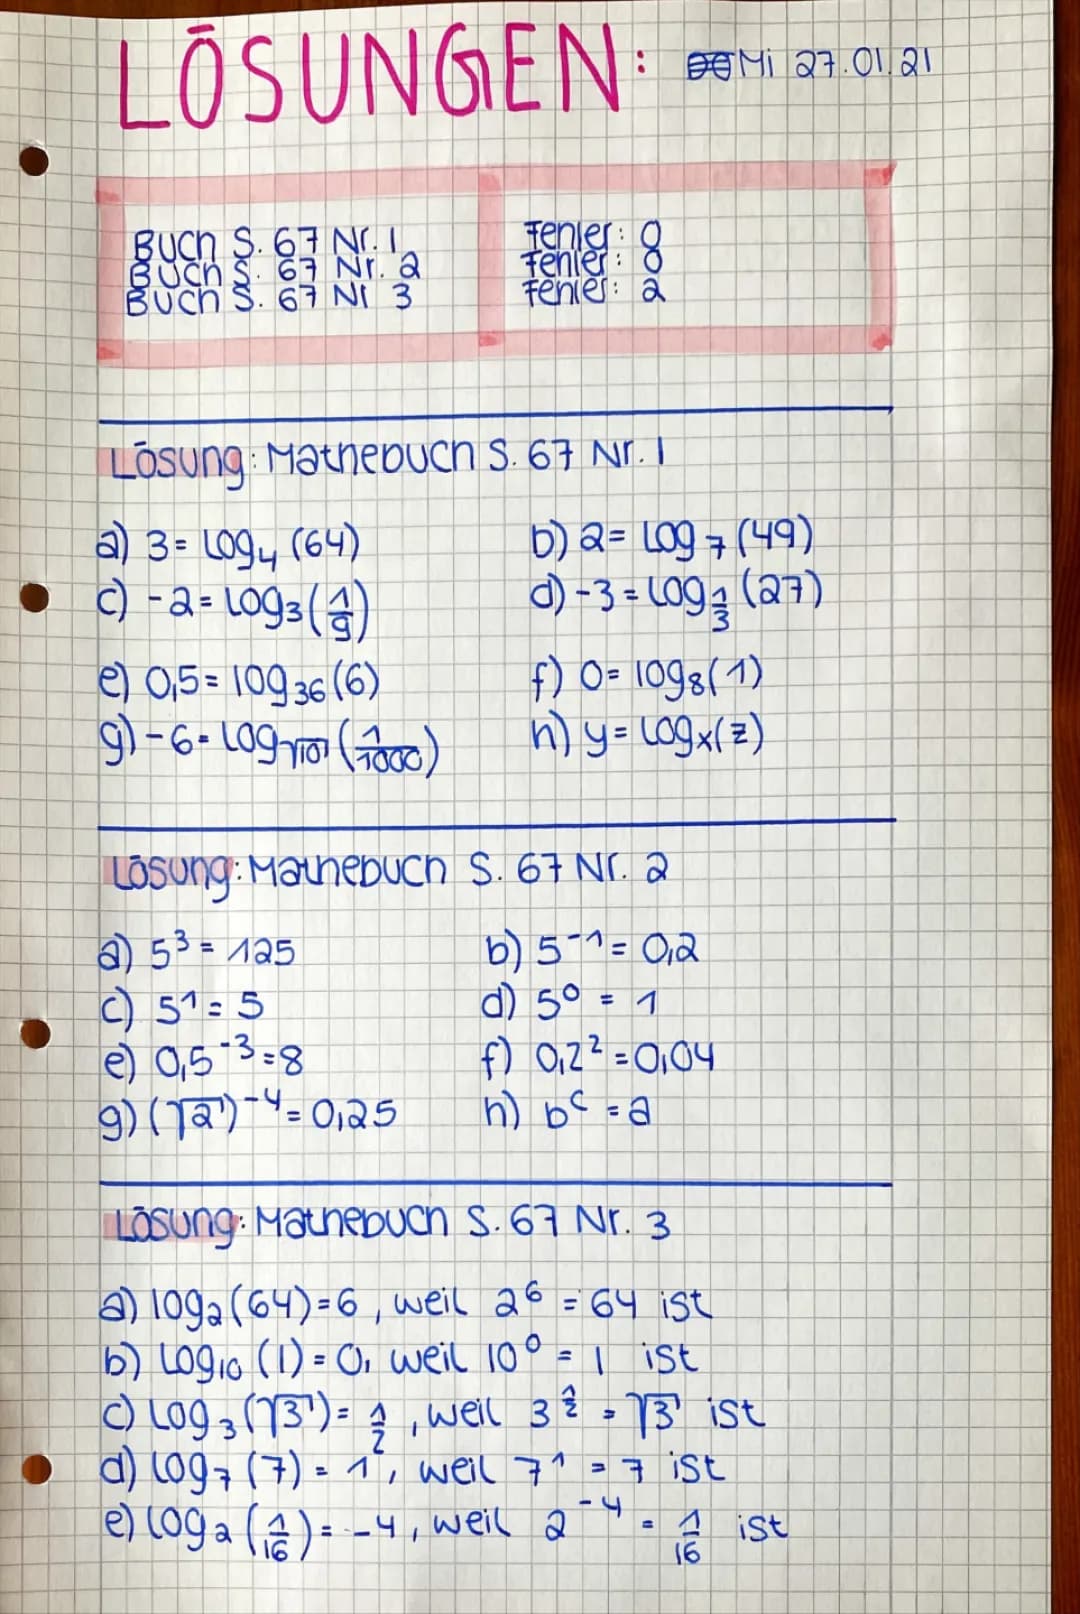 LÖSUNGEN: Mi 27.01.21
Buch S. 67 Nr. 1 Fehler: 0
Buch S. 67 Nr. 2 Fehler: 0
Buch S. 67 Nr 3 Fehler: 2
Lösung: Mathebuch S. 67 Nr. 1
a) 3 = log₄ (64) b) 2 = log₇ (49)
c) -2 = log₃ (1/9) d) -3 = log_(1/3) (27)
e) 0,5 = log₃₆ (6) f) 0 = log₈ (1)
g) -6 = log_√10 (1/1000) h) y = logₓ(z)
Lösung: Mathebuch S. 67 Nr. 2
a) 5³ = 125 b) 5⁻¹ = 0,2
c) 5¹ = 5 d) 5⁰ = 1
e) 0,5⁻³ = 8 f) 0,2² = 0,04
g) (√2)⁻⁴ = 0,25 h) bᶜ = a
Lösung: Mathebuch S. 67 Nr. 3
a) log₂ (64) = 6, weil 2⁶ = 64 ist
b) log₁₀ (1) = 0, weil 10⁰ = 1 ist
c) log₃ (√3) = 1/2, weil 3^(1/2) = √3 ist
d) log₇ (7) = 1, weil 7¹ = 7 ist
e) log₂ (1/16) = -4, weil 2⁻⁴ = 1/16 ist